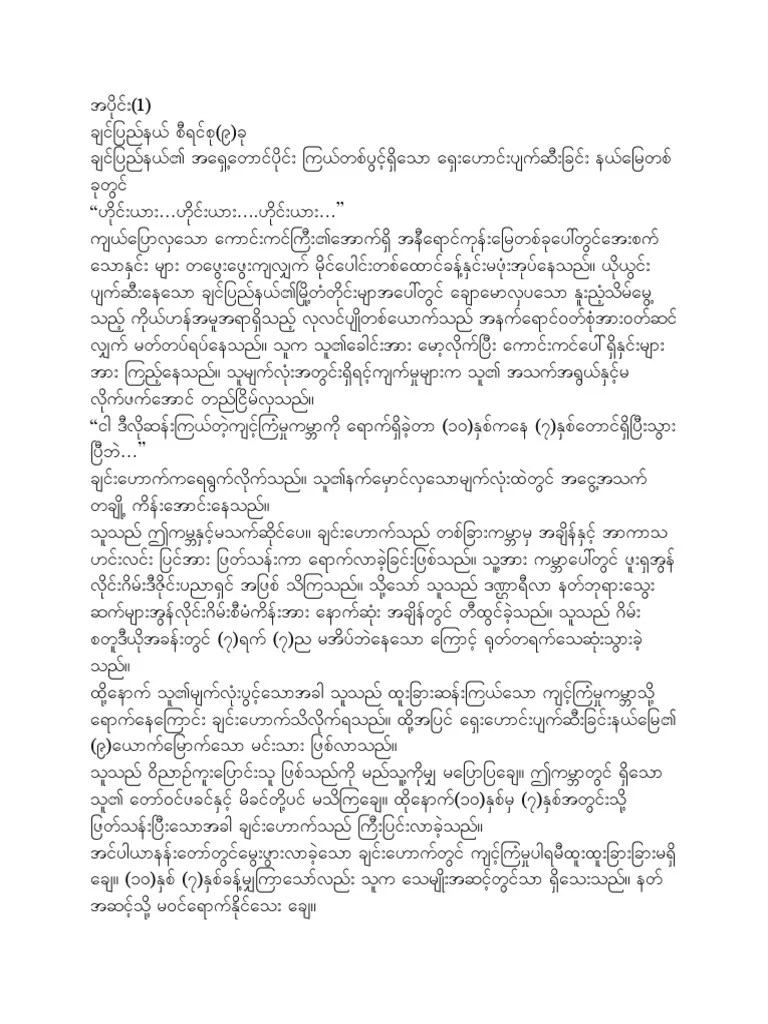 အပိုင်း(1)
ချင်ပြည်နယ် စီရင်စု(၉)ခု
ချင်ပြည်နယ်၏ အရှေ့တောင်ပိုင်း ကြယ်တစ်ပွင့်ရှိသော ရှေးဟောင်းပျက်ဆီးခြင်း နယ်မြေတစ်
ခုတွင်
“ဟိုင်းယား…ဟိုင်းယား….ဟိုင်းယား…”
ကျယ်ပြောလှသော ကောင်းကင်ကြီး၏အောက်ရှိ အနီရောင်ကုန်းမြေတစ်ခုပေါ်တွင်အေးစက်
သောနှင်း များ တဖွေးဖွေးကျလျှက် မိုင်ပေါင်းတစ်ထောင်ခန့်နှင်းမဖုံးအုပ်နေသည်။ ယိုယွင်း
ပျက်ဆီးနေသော ချင်ပြည်နယ်၏မြို့တံတိုင်းမျာအပေါ်တွင် ချောမောလှပသော နူးညံ့သိမ်မွေ့
သည့် ကိုယ်ဟန်အမူအရာရှိသည့် လုလင်ပျိုတစ်ယောက်သည် အနက်ရောင်ဝတ်စုံအားဝတ်ဆင်
လျှက် မတ်တပ်ရပ်နေသည်။ သူက သူ၏ခေါင်းအား မော့လိုက်ပြီး ကောင်းကင်ပေါ် ရှိနှင်းများ
အား ကြည့်နေသည်။ သူမျက်လုံးအတွင်းရှိရင့်ကျက်မှုများက သူ၏ အသက်အရွယ်နှင့်မ
လိုက်ဖက်အောင် တည်ငြိမ်လှသည်။
“ငါ ဒီလိုဆန်းကြယ်တဲ့ကျင့်ကြံမှုကမ္ဘာကို ရောက်ရှိခဲ့တာ (၁၀)နှစ်ကနေ (၇)နှစ်တောင်ရှိပြီးသွား
ပြီဘဲ…”
ချင်းဟောက်ကရေရွက်လိုက်သည်။ သူ၏နက်မှောင်လှသောမျက်လုံးထဲတွင် အငွေ့အသက်
တချို့ ကိန်းအောင်းနေသည်။
သူသည် ဤကမ္ဘာနှင့်မသက်ဆိုင်ပေ။ ချင်းဟောက်သည် တစ်ခြားကမ္ဘာမှ အချိန်နှင့် အာကာသ
ဟင်းလင်း ပြင်အား ဖြတ်သန်းကာ ရောက်လာခဲ့ခြင်းဖြစ်သည်။ သူ့အား ကမ္ဘာပေါ်တွင် ဖူးရှုအွန်
လိုင်းဂိမ်းဒီဇိုင်းပညာရှင် အဖြစ် သိကြသည်။ သို့သော် သူသည် ဒဏ္ဍာရီလာ နတ်ဘုရားသွေး
ဆက်များအွန်လိုင်းဂိမ်းစီမံကိန်းအား နောက်ဆုံး အချိန်တွင် တီထွင်ခဲ့သည်။ သူသည် ဂိမ်း
စတူဒီယိုအခန်းတွင် (၇)ရက် (၇)ည မအိပ်ဘဲနေသော ကြောင့် ရုတ်တရက်သေဆုံးသွားခဲ့
သည်။
ထို့နောက် သူ၏မျက်လုံးပွင့်သောအခါ သူသည် ထူးခြားဆန်းကြယ်သော ကျင့်ကြံမှုကမ္ဘာသို့
ရောက်နေကြောင်း ချင်းဟောက်သိလိုက်ရသည်။ ထို့အပြင် ရှေးဟောင်းပျက်ဆီးခြင်းနယ်မြေ၏
(၉)ယောက်မြောက်သော မင်းသား ဖြစ်လာသည်။
သူသည် ဝိညာဉ်ကူးပြောင်းသူ ဖြစ်သည်ကို မည်သူ့ကိုမျှ မပြောပြချေ။ ဤကမ္ဘာတွင် ရှိသော
သူ၏ တော်ဝင်ဖခင်နှင့် မိခင်တို့ပင် မသိကြချေ။ ထိုနောက်(၁၀)နှစ်မှ (၇)နှစ်အတွင်းသို့
ဖြတ်သန်းပြီးသောအခါ ချင်းဟောက်သည် ကြီးပြင်းလာခဲ့သည်။
အင်ပါယာနန်းတော်တွင်မွေးဖွားလာခဲ့သော ချင်းဟောက်တွင် ကျင့်ကြံမှုပါရမီထူးထူးခြားခြားမရှိ
ချေ။ (၁၀)နှစ် (၇)နှစ်ခန့်မျှကြာသော်လည်း သူက သေမျိုးအဆင့်တွင်သာ ရှိသေးသည်။ နတ်
အဆင့်သို့ မဝင်ရောက်နိုင်သေး ချေ။